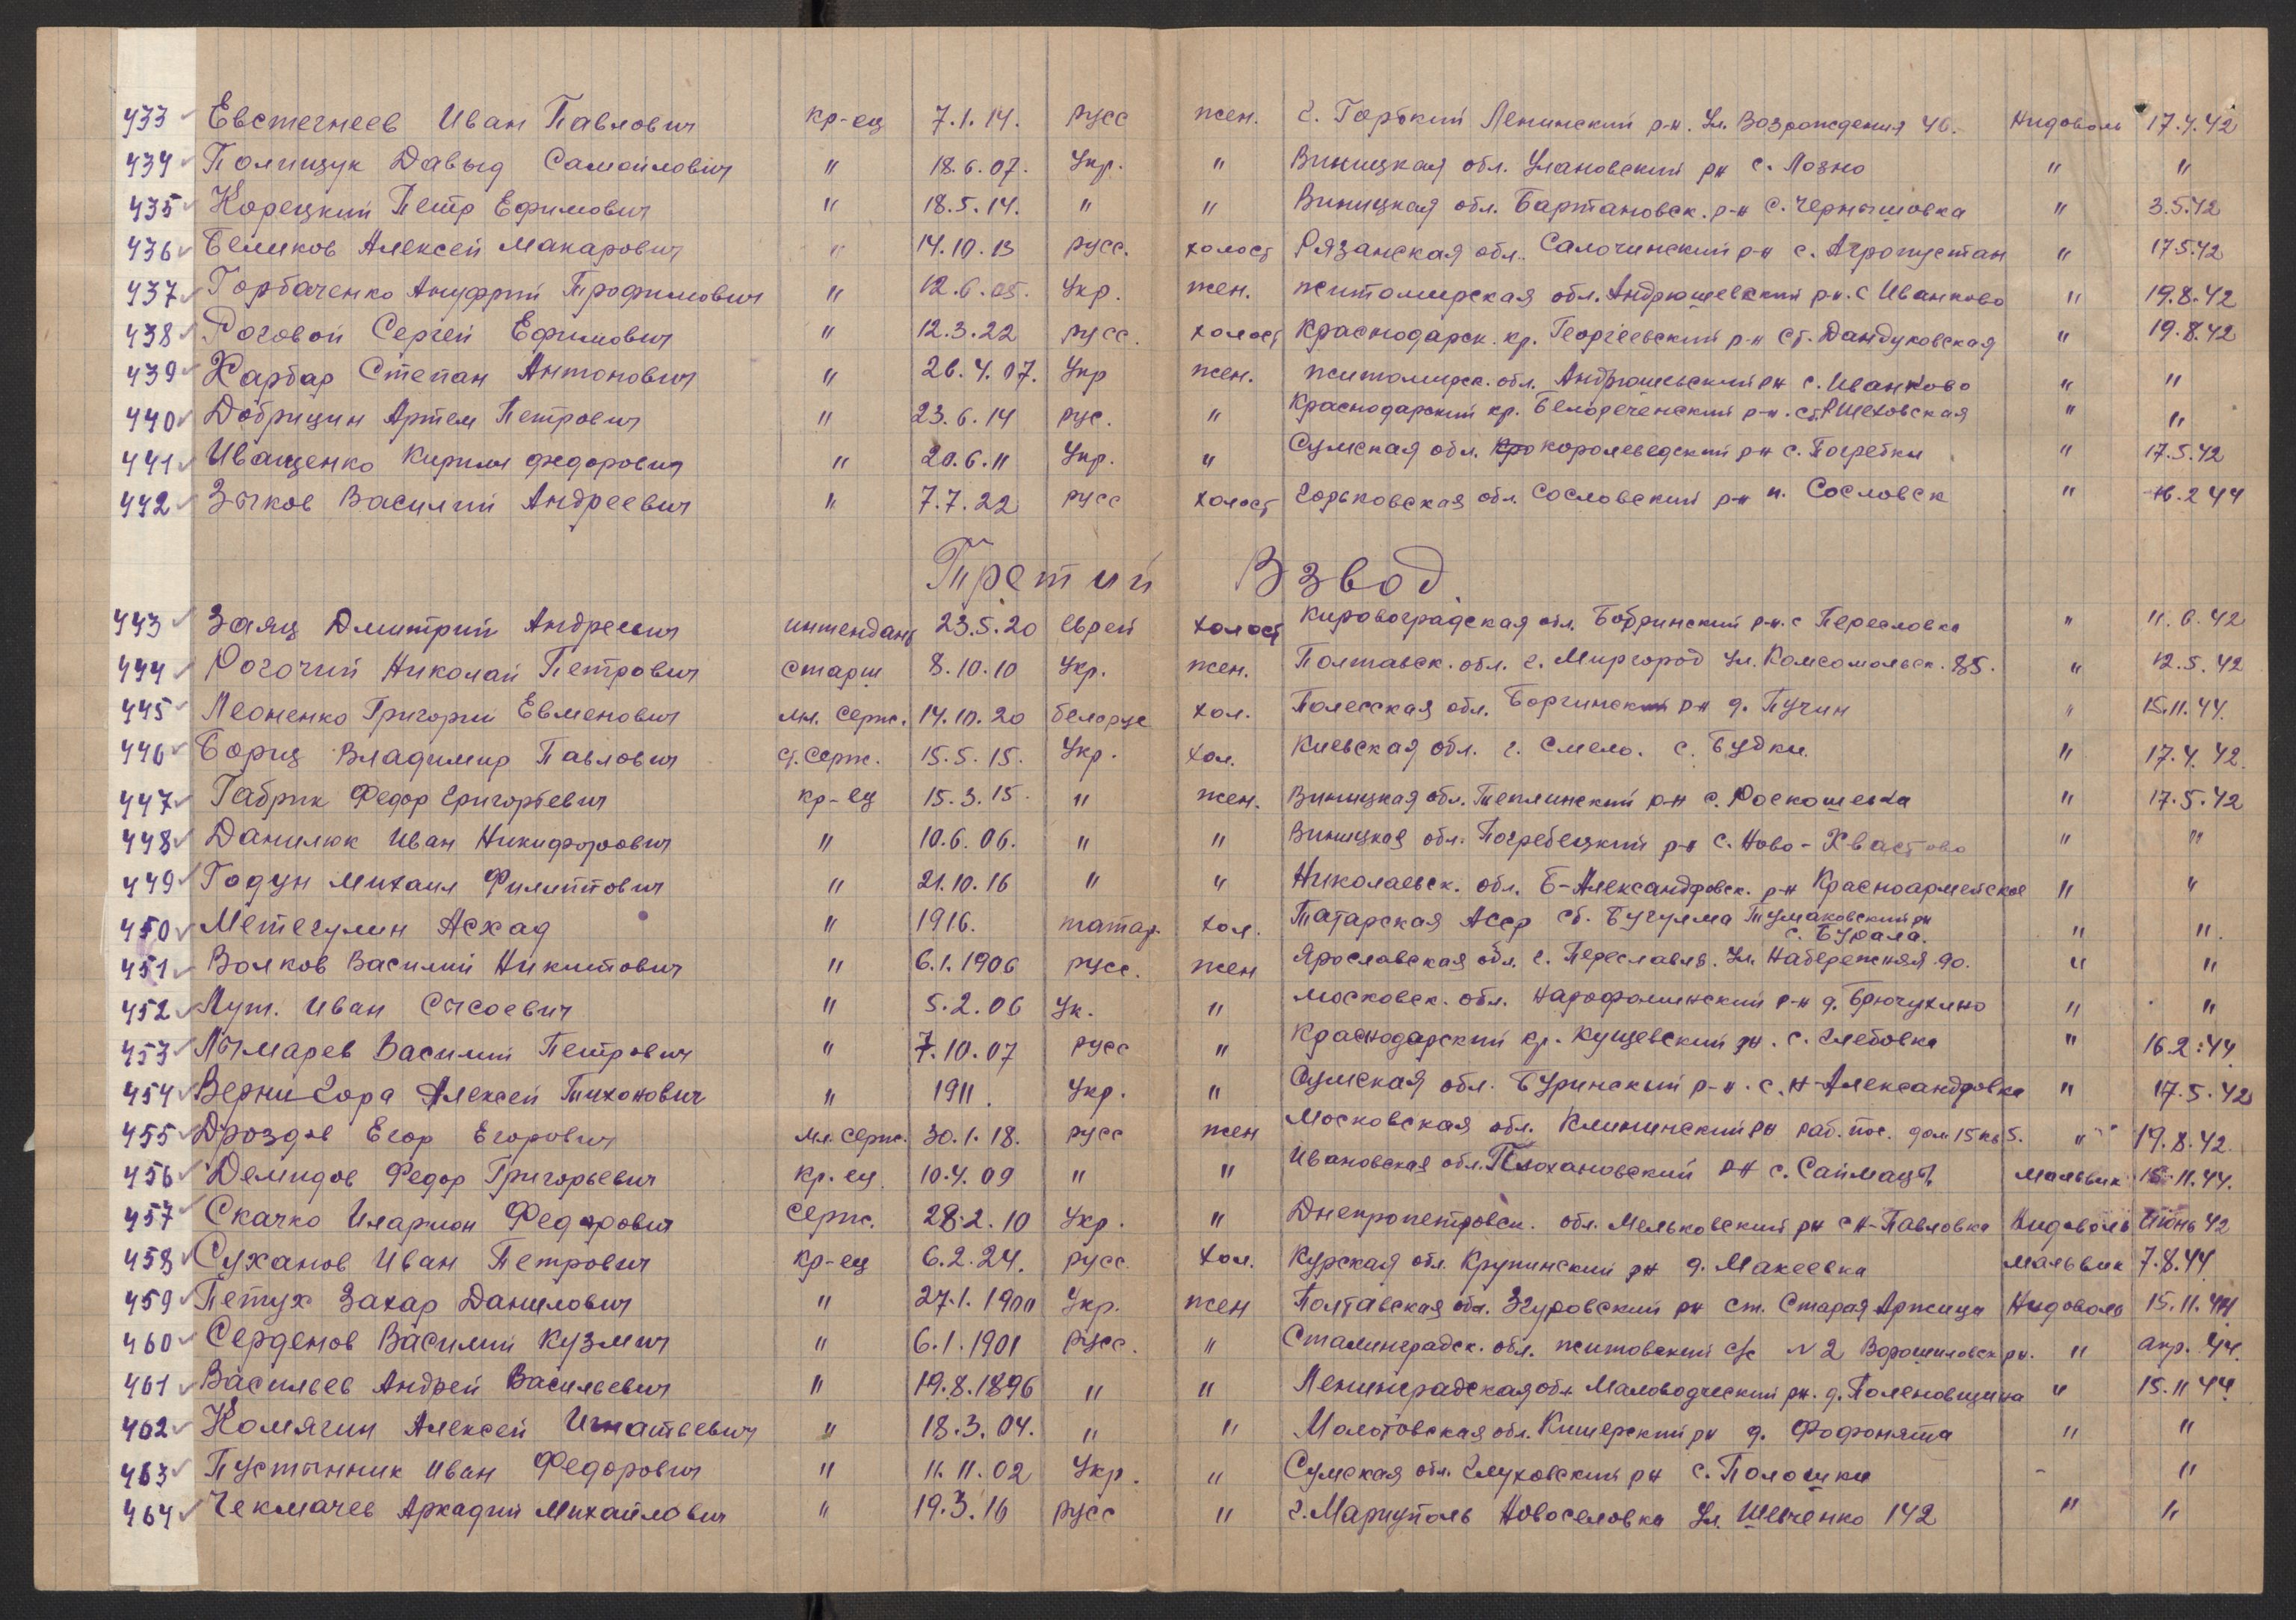 433 Евстегнеев Иван Павлович кр-ец 7.1.14. русс жен. г. Горький Ленинский р-н. Ул. Возрождения 46. Нидоволь 17.4.42
434 Полищук Давыд Самойлович " 18.6.07. Укр. " Виницкая обл. Улановский рн с. Лозно " "
435 Корецкий Петр Ефимович " 18.5.14. " " Виницкая обл. Бартановск. р-н с. Чернышовка " 3.5.42
436 Беликов Алексей Макарович " 14.10.13 русс. холост Рязанская обл. Салочинский р-н с. Агропустан " 17.5.42
437 Горбаченко Ануфрий Трофимович " 12.6.05. Укр. жен. житомирская обл. Андрюшевский р-н. с Иванково " 19.8.42
438 Роговой Сергей Ефимович " 12.3.22 русс. холост Краснодарск. кр. Георгиевский р-н ст. Дандуковская " 19.8.42
439 Харбар Степан Антонович " 26.4.07. Укр жен. житомирск. обл. Андрюшевский рн с. Иванково " "
440 Добрицин Артем Петрович " 23.6.14 рус. " Краснодарский кр. Белореченский р-н. ст. Пшеховская " "
441 Иващенко Кирилл федорович " 20.6.11 Укр. " Сумская обл. королеведский р-н с. Погребки " 17.5.42
442 Зыков Василий Андреевич " 7.7.22 русс холост Горьковская обл. Сословский р-н п. Сословск " 16.2 44
Третий Взвод
443 Заяц Дмитрий Андреевич интендант 23.5.20 еврей холост Кировоградская обл. Бобринский р-н. с Пересловка " 11.6.42
444 Рогочий Николай Петрович старш 8.10.10 Укр. жен. Полтавск. обл. г. Миргород Ул. Комсомольск. 85. " 12.5.42
445 Леоненко Григорий Евменович мл. серж. 14.10.20 белорус хол. Полесская обл. Боргинский рн д. Пучин " 15.11.44.
446 Бориц Владимир Павлович ст. серж. 15.5.15. Укр. хол. Киевская обл. г. Смело. с. Будки. " 17.4.42.
447 Габрик Федор Григорьевич кр-ец 15.3.15. " жен. Виницкая обл. Теплинский р-н с. Роскошевка " 17.5.42
448 Данилюк Иван Никифорович " 10.6.06. " " Виницкая обл. Погребецкий р-н с. Ново-Хвастово " "
449 Годун Михаил Филиппович " 21.10.16 " " Николаевск. обл. Б-Александровск. р-н Красноармейское " "
450 Метегулин Асхад " 1916. татар. хол. Татарская Асср ст. Бугулма Тумаковский рн
с. Бурала. " "
451 Волков Василий Никитович " 6.1.1906 русс. жен Ярославская обл. г. Переславль. Ул. Набережняя 90. " "
452 Лут. Иван Сысоевич " 5.2.06 Ук. " московск. обл. Нарофоминский р-н д. Брючухино " "
453 Лымарев Василий Петрович " 7.10.07 русс " Краснодарский кр. Кущевский рн. с. Глебовка " 16.2.44
454 Вернигора Алексей Тихонович " 1911. Укр. " Сумская обл. Буринский р-н. с. Н-Александровка " 17.5.42
455 Дроздов Егор Егорович мл. серж. 30.1.18. русс жен Московская обл. Клининский рн раб. пос. дом 15 кв 5. " 19.8.42.
456 Демидов Федор Григорьевич кр.ец. 10.4.09 " " Ивановская обл. Плохановский рн с. Саймацы мальвик 15.11.44.
457 Скачко Иларион Федорович серж. 28.2.10 Укр. " Днепропетровск. обл. Мельковский рн с Н-Павловка Нидоволь Июнь 42
458 Суханов Иван Петрович кр-ец 6.2.24. русс. хол. Курская обл. Крупинский рн д. Макеевка мальвик 7.8.44
459 Петух Захар Данилович " 27.1.1900 Укр. жен Полтавская обл. Згуровский рн ст. Старая Аржица Нидоволь 15.11.44
460 Серденов Василий Кузмич " 6.1.1901 русс. " Сталинградск. обл. житовский с/с N 2 Ворошиловск рн. " апр. 44.
461 Васильев Андрей Васильевич " 19.8.1896 " " Ленинградская обл. Маловодческий рн. д. Поленовщина " 15.11 44
462 Комягин Алексей Игнатьевич " 18.3.04. " " Молотовская обл. Кишерский рн д. Фофонята " "
463 Пустынник Иван Федорович " 11.11.02 Укр. " Сумская обл. Глуховский рн с. Полошки - "
464 Чекмачев Аркадий Михайлович " 19.3.16 русс " г. Мариуполь Новоселовка Ул. Шевченко 142 " "